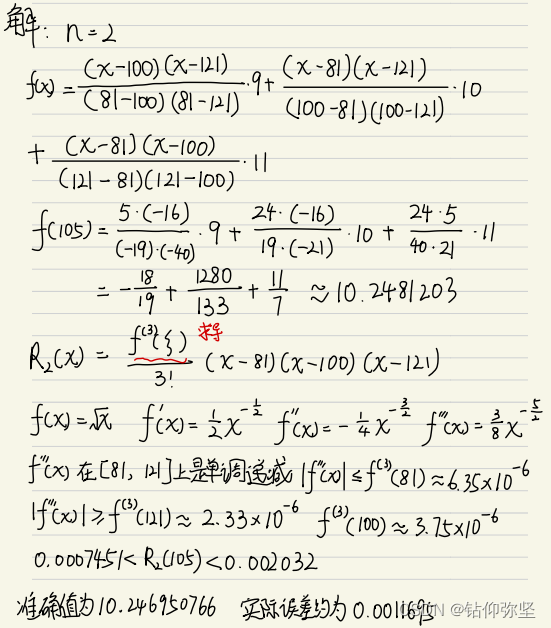 解: n=2
f(x)=\frac{(x-100)(x-121)}{(81-100)(81-121)}·9+\frac{(x-81)(x-121)}{(100-81)(100-121)}·10
+\frac{(x-81)(x-100)}{(121-81)(121-100)}·11
f(105)=\frac{5·(-16)}{(-19)·(-40)}·9+\frac{24·(-16)}{19·(-21)}·10+\frac{24·5}{40·21}·11
=-\frac{18}{19}+\frac{1280}{133}+\frac{11}{7}≈10.2481203
R_2(x)=\frac{f^{(3)}(ξ)}{3!}(x-81)(x-100)(x-121)
求导
f(x)=\sqrt{x} f'(x)=\frac{1}{2}x^{-\frac{1}{2}} f''(x)=-\frac{1}{4}x^{-\frac{3}{2}} f'''(x)=\frac{3}{8}x^{-\frac{5}{2}}
f'''(x)在[81,121]上是单调递减,|f'''(x)|≤f^{(3)}(81)≈6.35×10^{-6}
|f'''(x)|≥f^{(3)}(121)≈2.33×10^{-6} f^{(3)}(100)≈3.75×10^{-6}
0.0007451<R_2(105)<0.002032
准确值为10.246950766 实际误差约为0.0011695
CSDN @钻仰弥坚